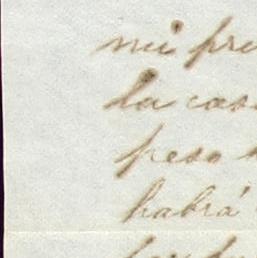 mi pre
la cas
peso
habrá